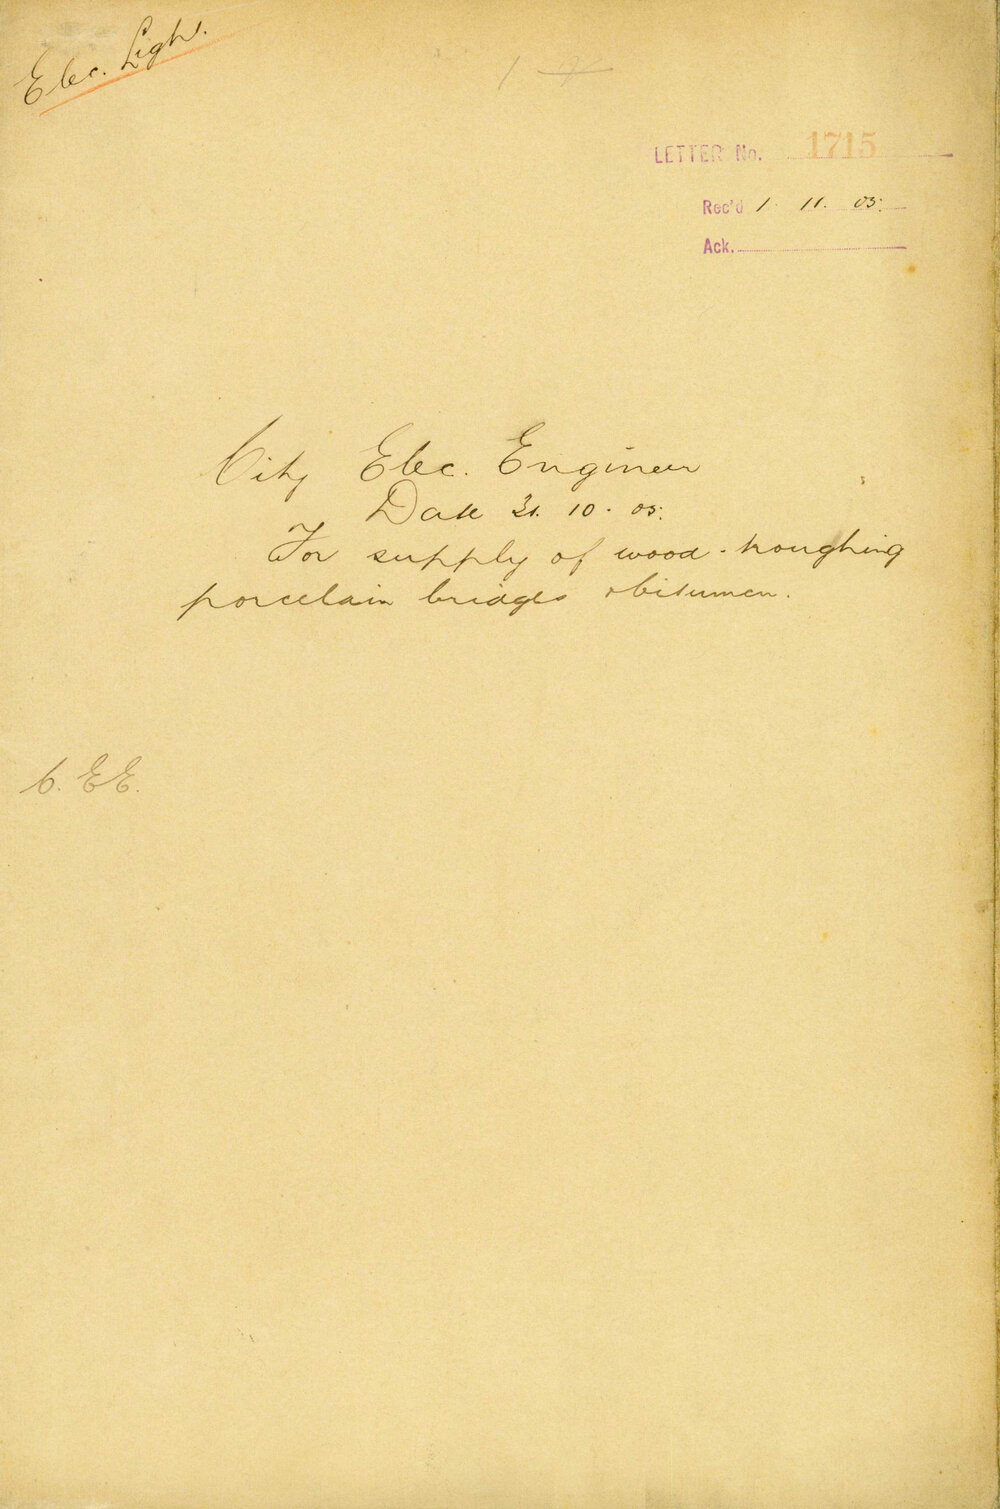 Elec. Light.
LETTER No. 1715
Rec'd 1. 11. 05.
Ack.
City Elec. Engineer
Date 31. 10. 05.
For supply of wood-troughing
porcelain bridges & bitumen.
C. E E.